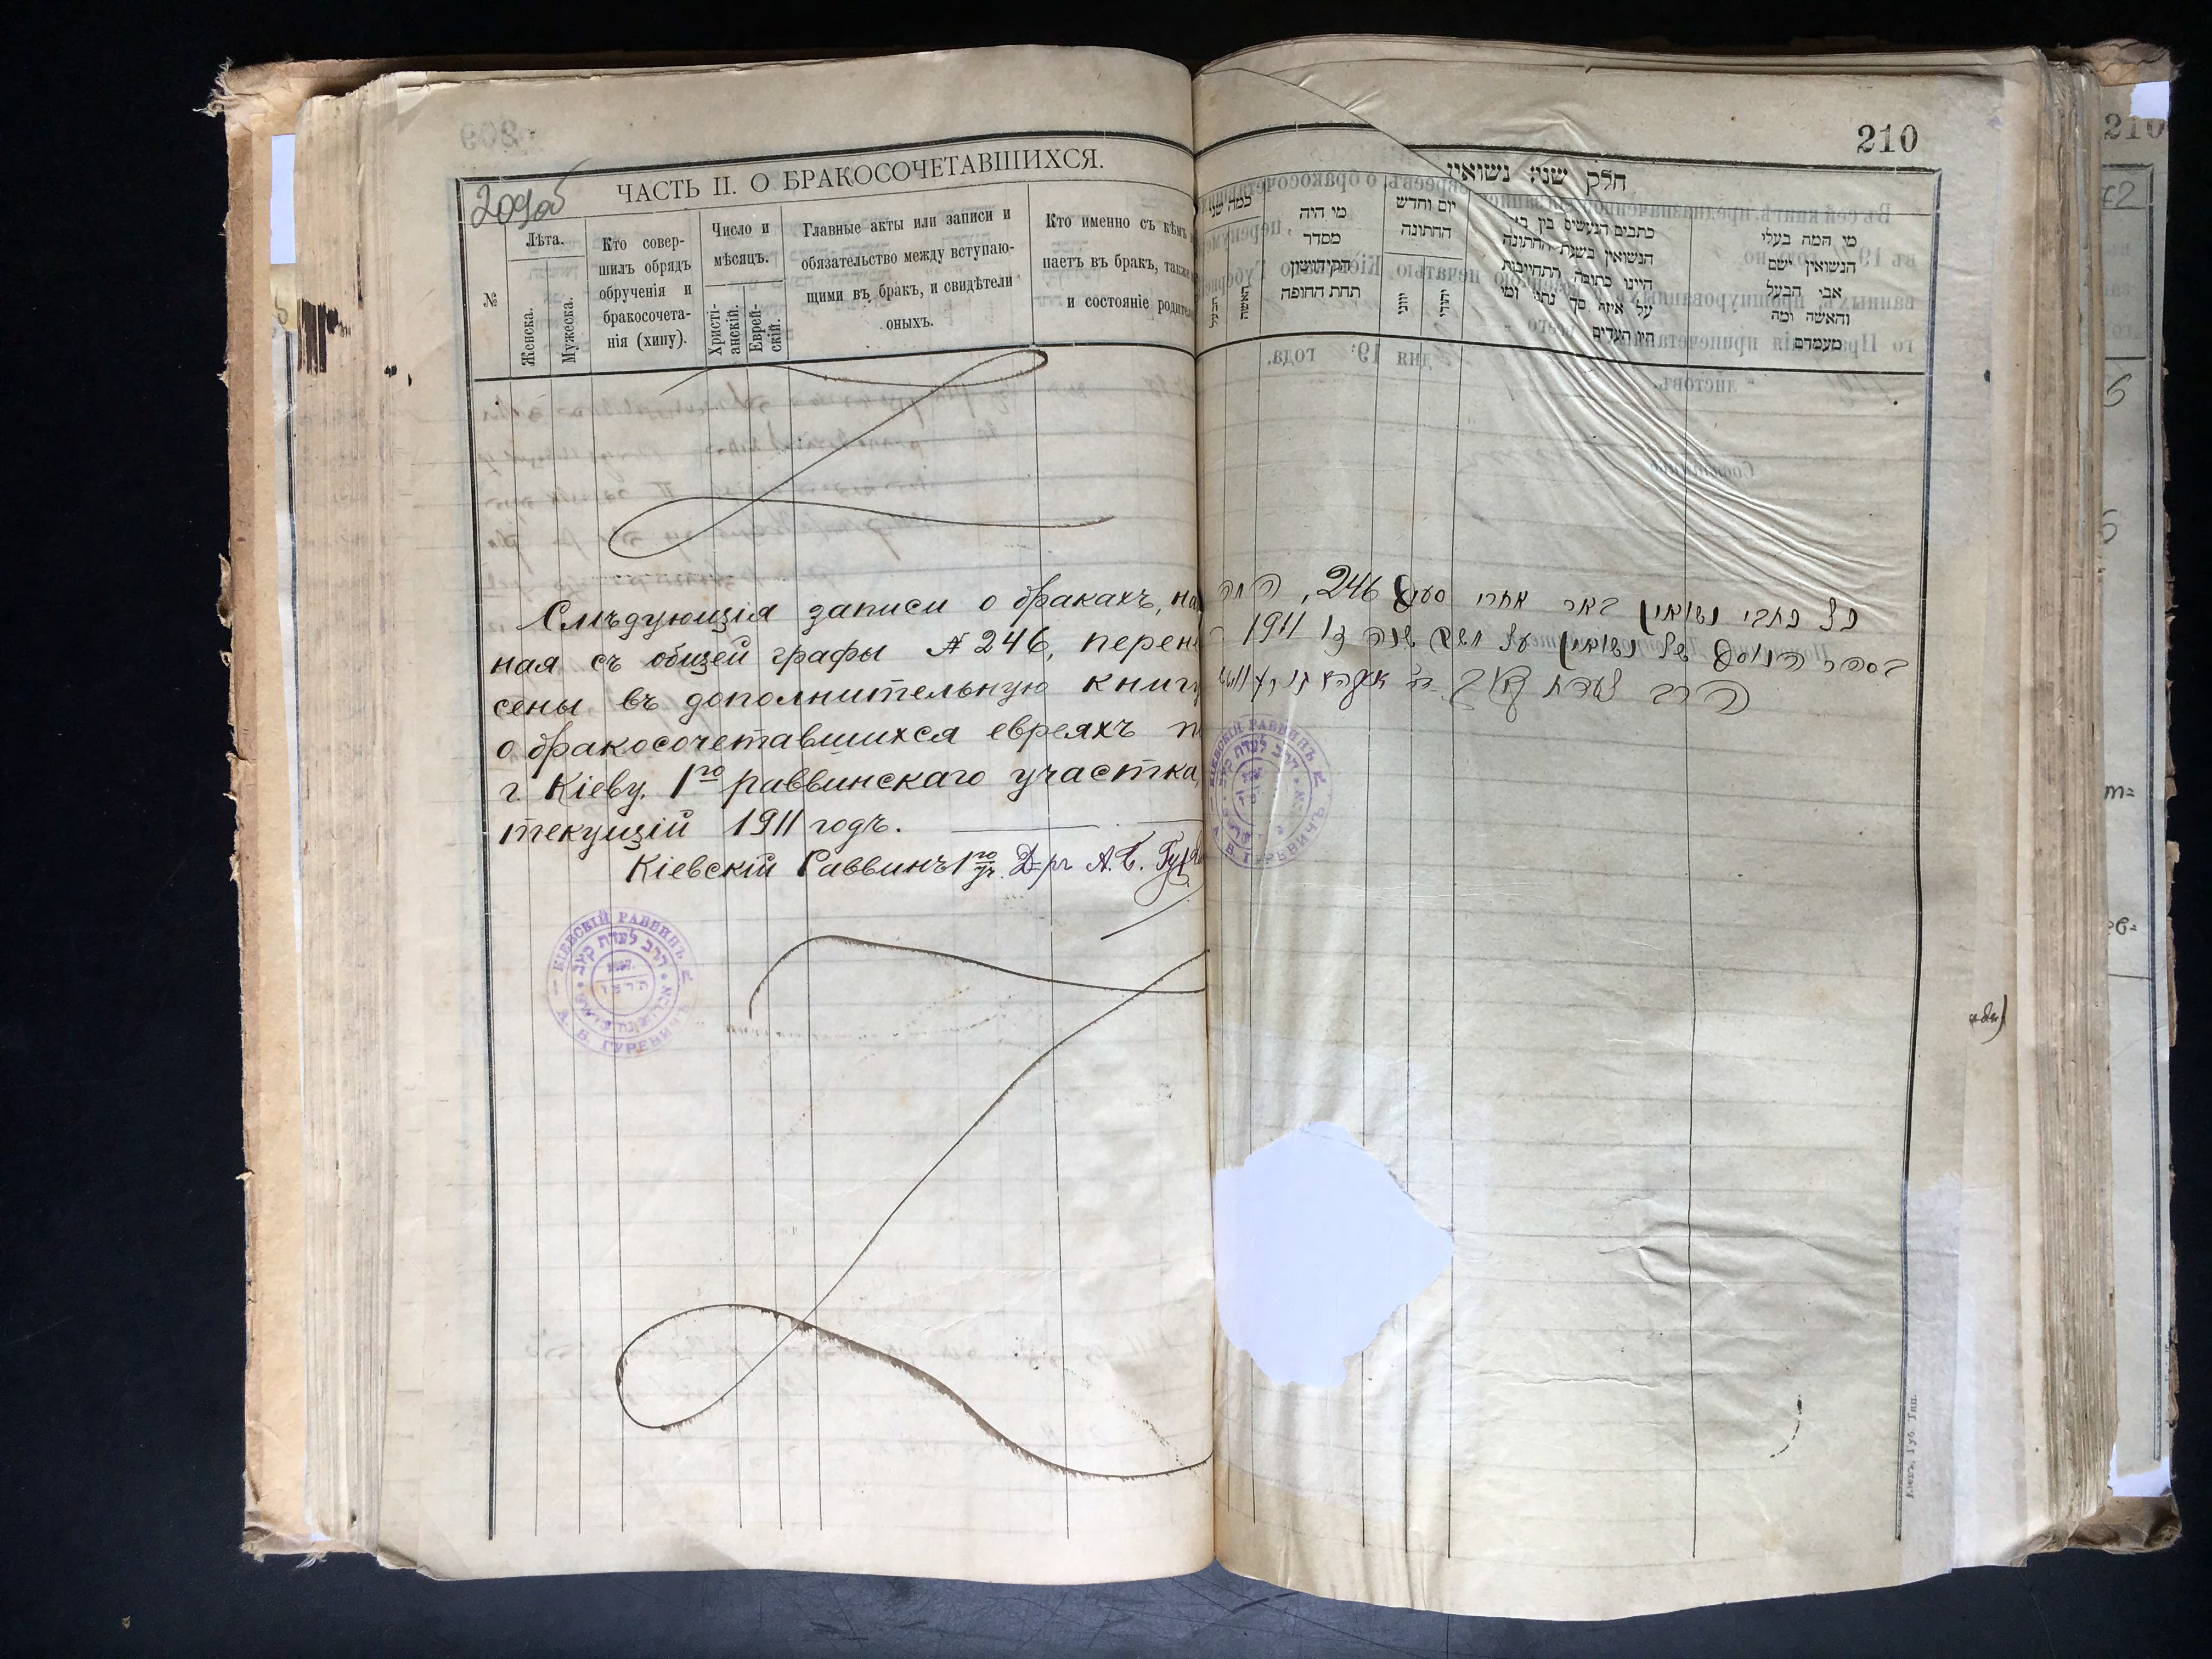 209об
ЧАСТЬ II. О БРАКОСОЧЕТАВШИХСЯ.
№
Лѣта.
Женска.
Мужеска.
Кто совер-
шилъ обрядъ
обрученія и
бракосочета-
нія (хипу).
Число и
мѣсяцъ.
Христі-
анскій.
Еврей-
скій.
Главные акты или записи и
обязательство между вступаю-
щими въ бракъ, и свидѣтели
оныхъ.
Кто именно съ кѣмъ
паетъ въ бракъ, также
и состояніе родител
Слѣдующія записи о бракахъ, на
ная съ общей графы № 246, перене
сены въ дополнительную книгу
о бракосочетавшихся евреяхъ п
г. Кіеву, 1го раввинскаго участка,
текущій 1911 годъ.
Кіевскій Раввинъ 1го уч. Д-ръ А. Б. Гур
КІЕВСКІЙ РАВВИНЪ
А. Б. ГУРЕВИЧЪ
הרב לעדת קיוב
210
חלק שני נשואין
כמה שני
הבעל
האשה
מי היה
מסדר
הקידושין
תחת החופה
יום וחדש
החתונה
יוני
יהודי
כתבים הנעשים בין
הנשואין בשעת החתונה
היינו כתובה התחייבות
על איזה סך נתנו ומי
היו העדים
מי המה בעלי
הנשואין ושם
אבי הבעל
והאשה ומה
מעמדם
כל כתבי נשואין באו אחרי 246
בספר הנוסף של נשואין על שנה זו 1911
הרב לעדת קיוב
КІЕВСКІЙ РАВВИНЪ
הרב לעדת קיוב
Губ. Тип.
210